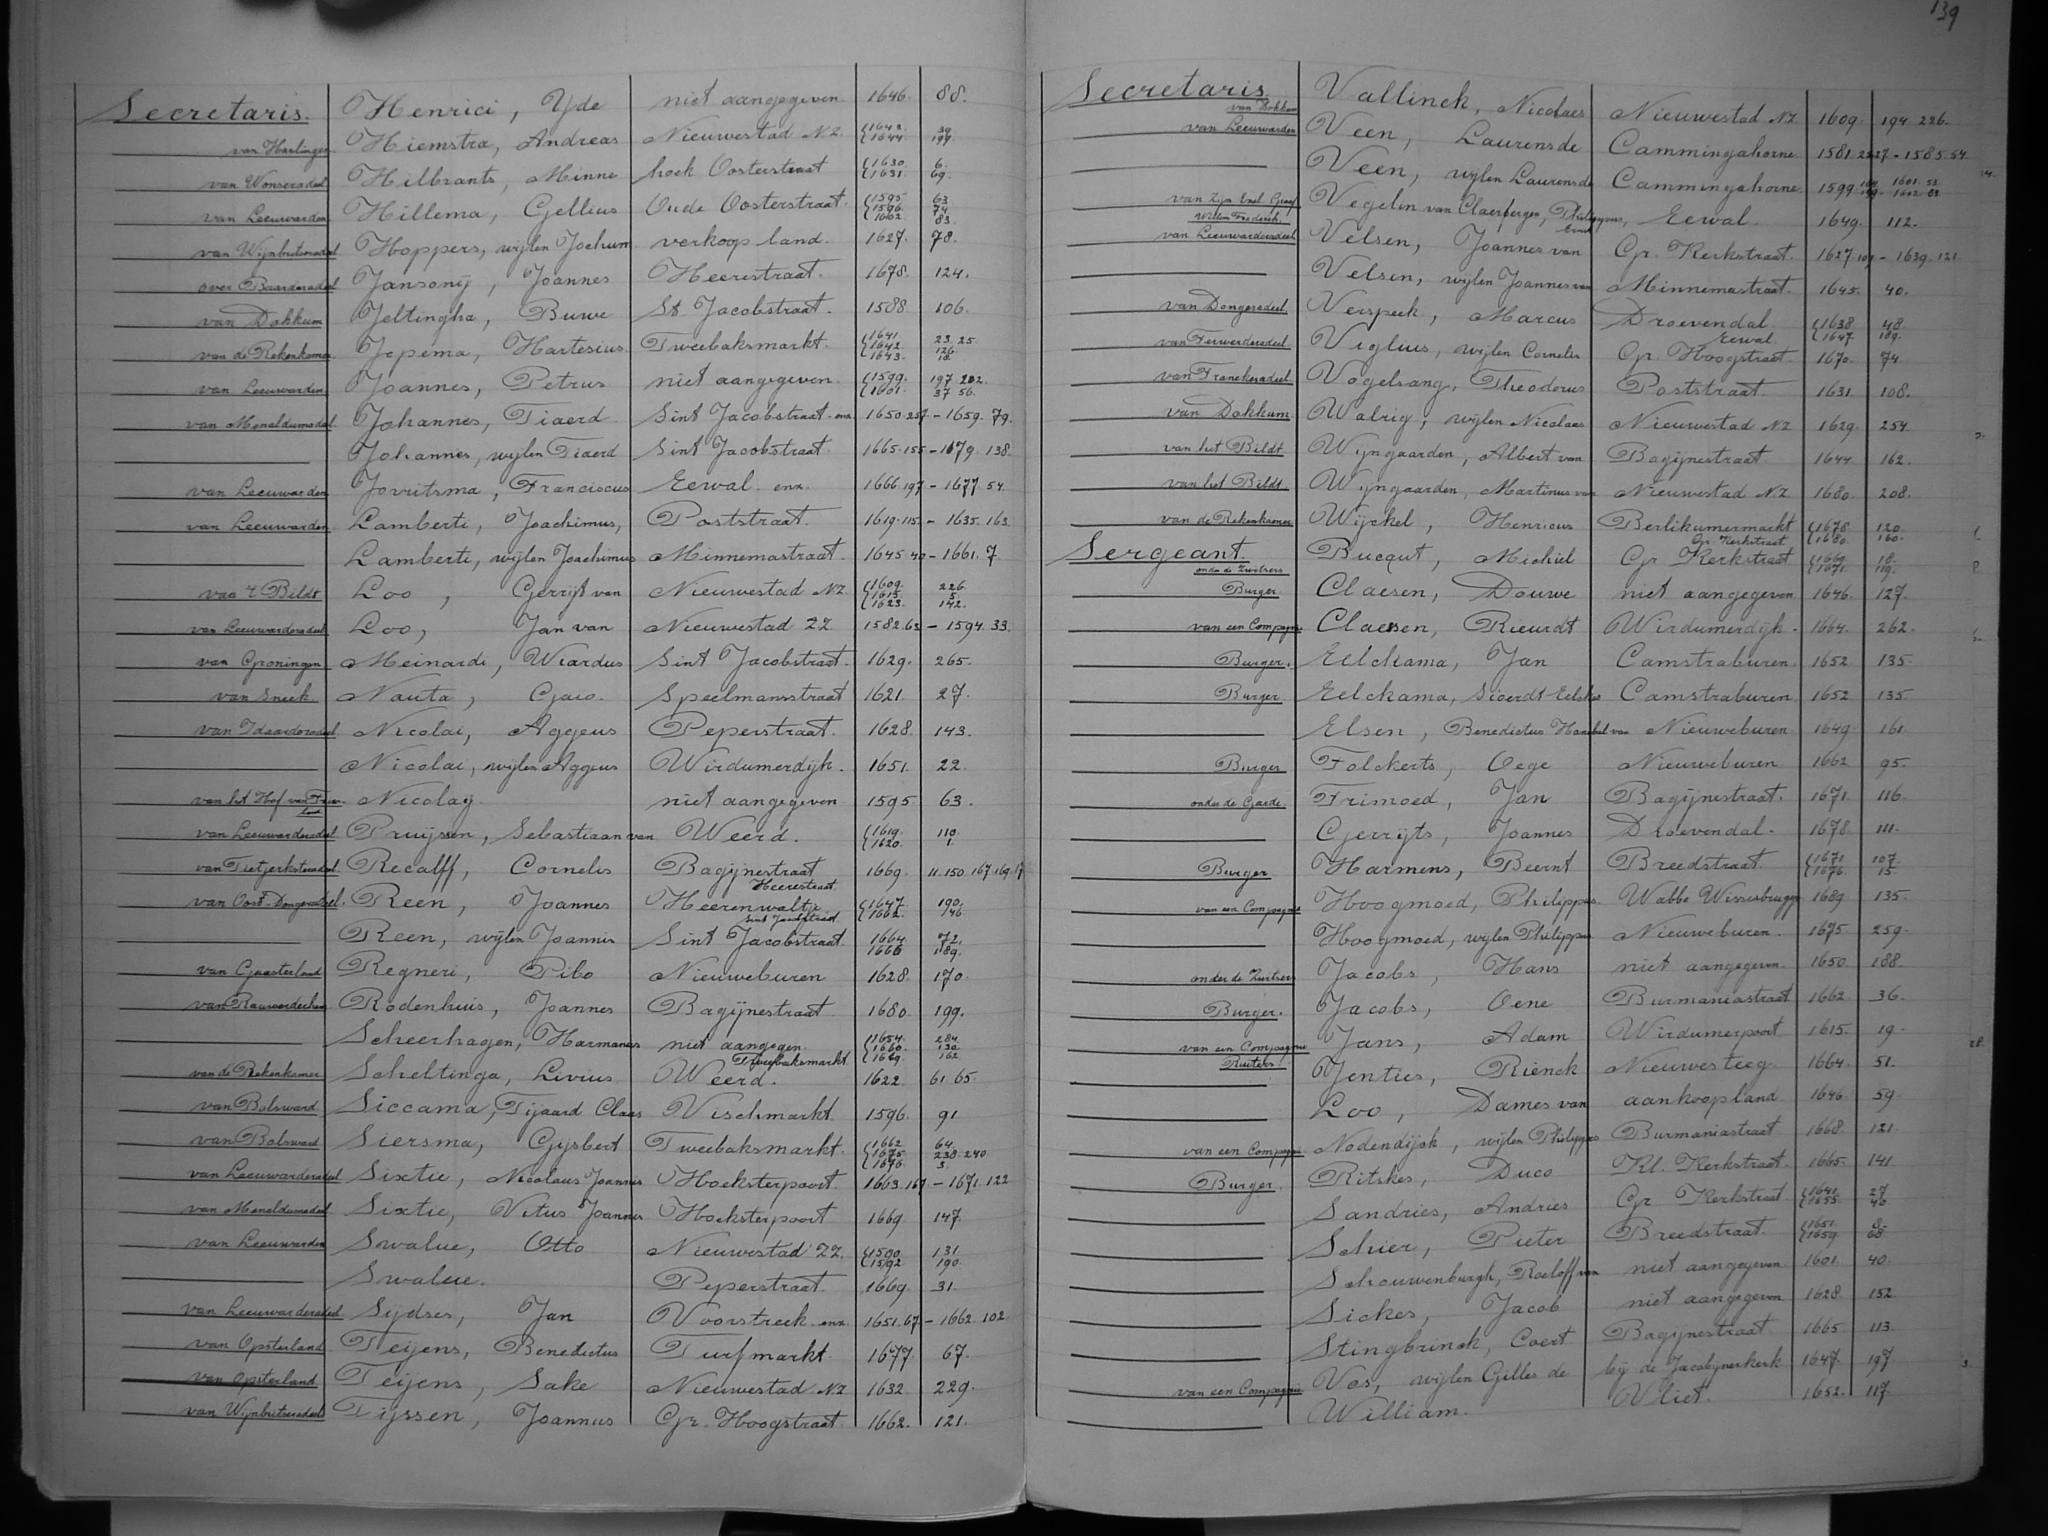 Secretaris. Henrici, Yde niet aangegeven 1646. 88.
van Harlingen Hiemstra, Andreas Nieuwestad NZ. 1643. 39. 1644 199.
van Wonseradeel Hilbrants, Minne hoek Oosterstraat 1630. 6. 1631. 69.
van Leeuwarden Hillema, Gellius Oude Oosterstraat. 1595 63 1596. 74 1602 83.
van Wijmbritseradeel Hoppers, wijlen Jochum verkoop land. 1627. 78.
over Baarderadeel Jansonij, Joannes Heerestraat. 1678. 124.
van Dokkum Jeltingha, Buwe St Jacobstraat. 1588 106.
van de Rekenkamer Jepema, Hartesius Tweebaksmarkt. 1641. 23.25 1642 126 1643. 18.
van Leeuwarden Joannes, Petrus niet aangegeven. 1599. 197 202. 1601. 37 56.
van Menaldumadeel Johannes, Tiaerd Sint Jacobstraat. enz. 1650.257 - 1659. 79.
Johannes, wijlen Tiaerd Sint Jacobstraat. 1665.155 - 1679. 138.
van Leeuwarden Jovritsma, Franciscus Eewal. enz. 1666.197 - 1677 54.
van Leeuwarden Lamberti, Joachimus, Poststraat. 1619.115. - 1635. 163
Lamberti, wijlen Joachimus Minnemastraat. 1645 40 - 1661. 7
van 't Bildt Loo, Gerrijt van Nieuwestad NZ 1609. 226 1615. 5. 1623. 142.
van Leeuwarderadeel Loo, Jan van Nieuwestad ZZ. 1582.62 - 1594. 33.
van Groningen Meinardi, Wiardus Sint Jacobstraat. 1629. 265.
van Sneek Nauta, Gaio. Speelmansstraat 1621. 27.
van Idaarderadeel Nicolai, Aggeus Peperstraat. 1628. 143.
Nicolai, wijlen Aggeus Wirdumerdijk. 1651. 22.
van het Hof van Friesland Nicolaij niet aangegeven 1595 63.
van Leeuwarderadeel Pruijssen, Sebastiaan van Weerd. 1619. 110. 1620. 1.
van Tietjerksteradeel Recalff, Cornelis Bagijnestraat 1669. 11.150.167.169.17
Heerestraat.
van Oost-Dongeradeel. Reen, Joannes Heerenwaltje 1647. 190. 1662. 146.
Sint Jacobstraat
Reen, wijlen Joannis Sint Jacobstraat. 1664. 72. 1666 189.
van Gaasterland Regneri, Pibo Nieuweburen 1628. 170.
van Rauwerderhem Rodenhuis, Joannes Bagijnestraat 1680. 199.
Scheerhagen, Harmanus niet aangegen. 1654. 284. 1660. 132. 1669. 162
Tweebaksmarkt
van de Rekenkamer Scheltinga, Livius Weerd. 1622. 61 65.
van Bolsward Siccama, Tijaard Claas Vischmarkt. 1596. 91
van Bolsward Siersma, Gijsbert Tweebaksmarkt. 1662 64. 1675 238.240. 1676. 3.
van Leeuwarderadeel Sixtie, Nicolaus Joannis Hoeksterpoort 1663.167 - 1671.122
van Menaldumadeel Sixtie, Vitus Joannis Hoeksterpoort 1669 147.
van Leeuwarden Swalue, Otto Nieuwestad ZZ. 1590. 131. 1592 190.
Swalue. Peperstraat. 1669. 31.
van Leeuwarderadeel Sijdses, Jan Voorstreek. enz. 1651.67 - 1662. 102
van Opsterland Teijens, Benedictus Turfmarkt. 1677 67.
van Opsterland Teijens, Sake Nieuwestad NZ 1632 229.
van Wijmbritseradeel Tijssen, Joannus Gr. Hoogstraat. 1662. 121.
139
Secretaris van Dokkum Vallinck, Nicolaes Nieuwestad NZ 1609. 194 226.
van Leeuwarden Veen, Laurens de Cammingahorne 1581.25 27 - 1585.54
Veen, wijlen Laurens de Cammingahorne. 1599 1601. 1602
van Zijn Exel. Graaf Willem Frederik. Vegelin van Claerbergen, Philippus Ernst Eewal. 1649. 112.
van Leeuwarderadeel Velsen, Joannes van Gr. Kerkstraat. 1627.109 - 1639. 121.
Velsen, wijlen Joannes van Minnemastraat. 1645. 40.
van Dongeradeel Verspeek, Marcus Droevendal. 1638. 48. 1647. 189.
Eewal
van Ferwerderadeel Viglius, wijlen Cornelis Gr. Hoogstraat. 1670. 74.
van Franekeradeel Vogelsang, Theodorus Poststraat. 1631. 108.
van Dokkum Walrig, wijlen Nicolaas Nieuwestad NZ 1629. 254.
van het Bildt Wijngaarden, Albert van Bagijnestraat. 1644 162.
van het Bildt. Wijngaarden, Martinus van Nieuwestad NZ 1680. 208.
van de Rekenkamer Wijckel, Henricus Berlikumermarkt 1678. 120. 1680. 160.
Gr. Kerkstraat
Sergeant. onder de Zwitsers Bucqut, Michiel Gr Kerkstraat 1669. 18. 1671. 119.
Burger Claesen, Douwe niet aangegeven 1646. 127.
van een Compagnie Claessen, Rieurdt Wirdumerdijk. 1664. 262.
Burger. Eelckama, Jan Camstraburen. 1652 135.
Burger. Eelckama, Sioerdt Eelckes Camstraburen 1652 135
Elsen, Benedictus Hanibal van Nieuweburen 1649. 161.
Burger Folckerts, Oege Nieuweburen 1662 95.
onder de Garde. Frimoed, Jan Bagijnestraat. 1671. 116.
Gerrijts, Joannes Droevendal. 1678. 111.
Burger Harmens, Beernt Breedstraat. 1671. 107. 1676. 15.
van een Compagnie Hoogmoed, Philippus. Wabbe Wissesbrugge 1689. 135.
Hoogmoed, wijlen Philippus Nieuweburen. 1675 259.
onder de Zwitsers Jacobs, Hans niet aangegeven 1650 188
Burger. Jacobs, Oene Burmaniastraat 1662 36.
van een Compagnie Jans, Adam Wirdumerpoort. 1615. 19.
Ruiters Jenties, Rienck Nieuwesteeg 1664. 51.
Loo, Dames van aankoop land 1646 59.
van een Compagnie Nodendijck, wijlen Philippus Burmaniastraat 1668. 121.
Burger. Ritskes, Duco Kl. Kerkstraat. 1665. 141.
Sandries, Andries Gr Kerkstraat 1641. 27 1655. 46.
Schier, Pieter Breedstraat. 1651. 8. 1659. 68.
Schouwenburgh, Roeloff van niet aangegeven 1601 40.
Sickes, Jacob niet aangegeven 1628. 152
Stingbrinck, Coert Bagijnestraat. 1665. 113.
van een Compagnie Vos, wijlen Gilles de bij de Jacobijnerkerk 1647. 197
William. Vliet. 1652. 117